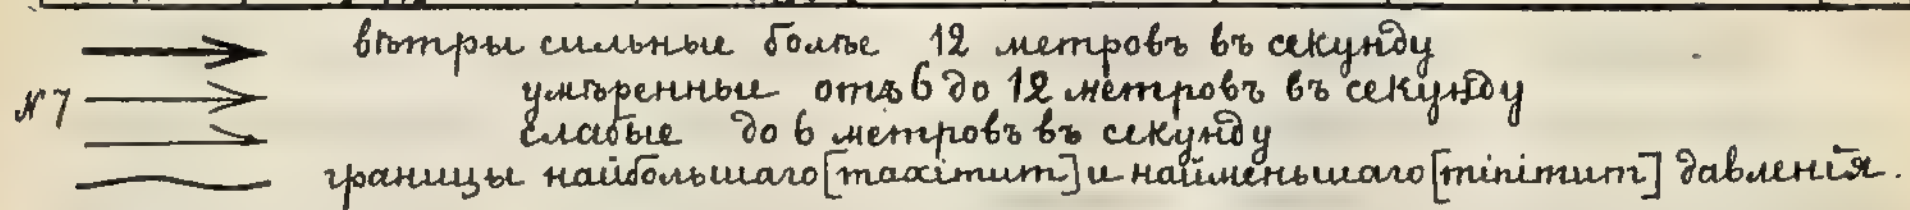 вѣтры сильные болѣе 12 метровъ въ секунду
№ 7 умѣренные отъ 6 до 12 метровъ въ секунду
слабые до 6 метровъ въ секунду
границы наибольшаго [maximum] и наименьшаго [minimum] давленія.